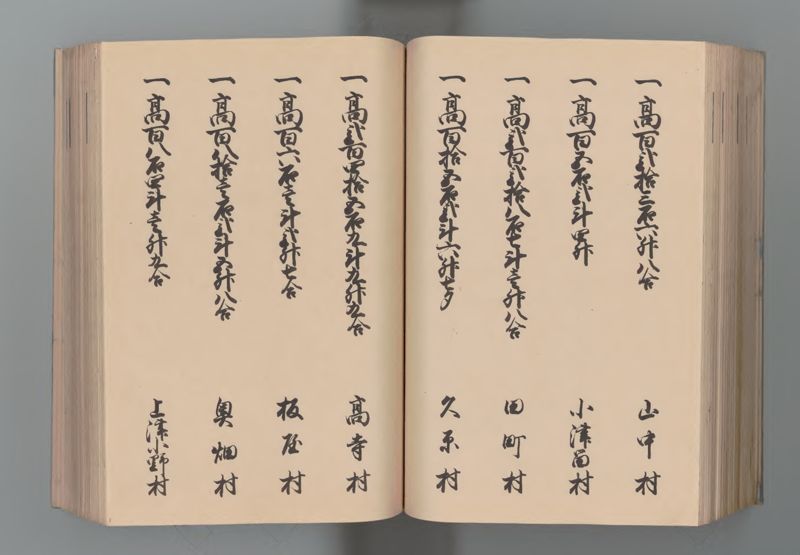 一高百弐拾三石六升八合 山中村
一高百五石弐斗四升 小津留村
一高弐百弐拾八石七斗壱升八合 田町村
一高百拾五石弐斗六升七夕 久原村
一高弐百四拾五石九斗九升九合 高寺村
一高百六石壱斗弐升七合 板屋村
一高百八拾三石弐斗五升八合 奥畑村
一高百八石四斗壱升九合 上津小野村